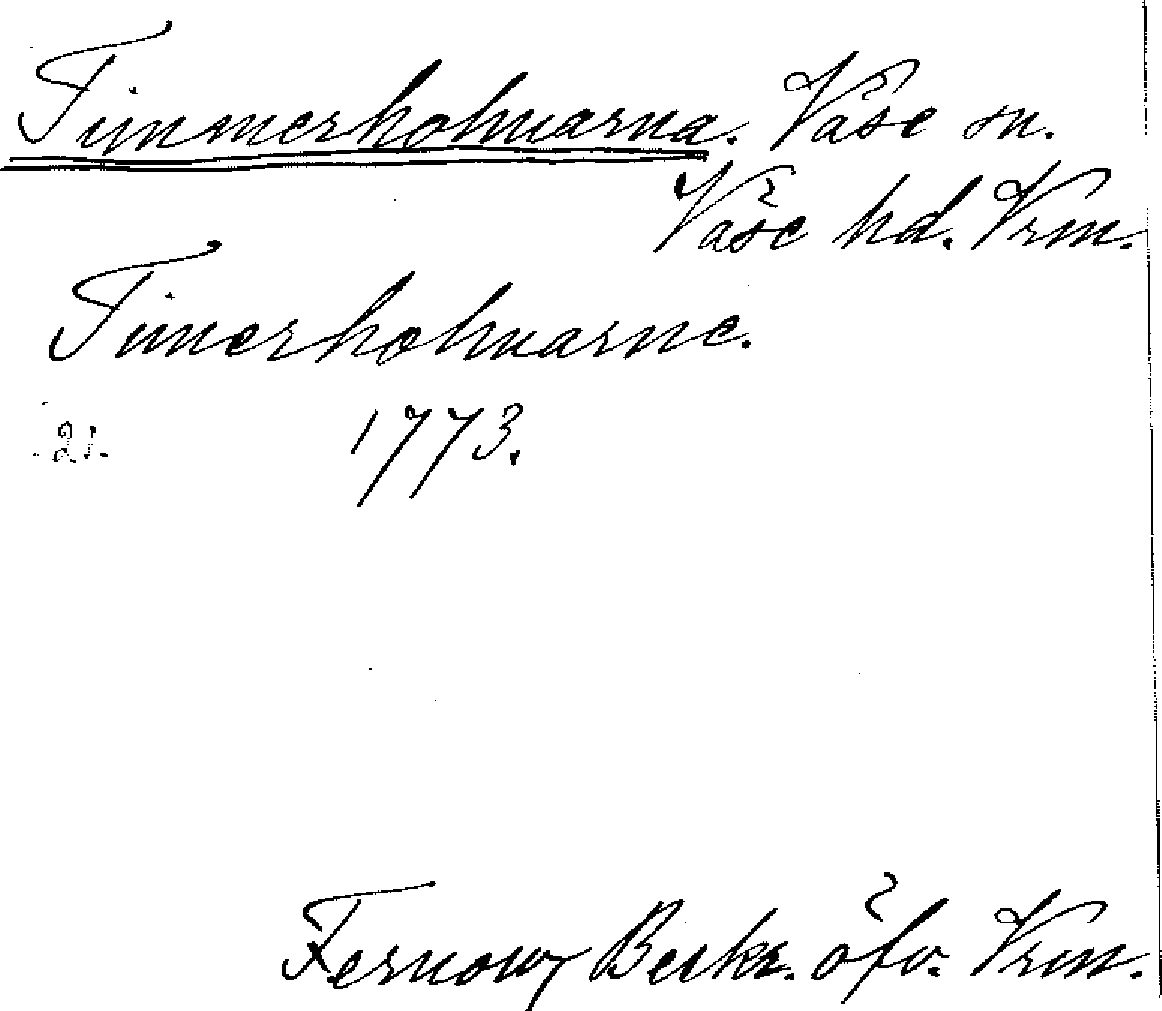 Timmerholmarna. Väse sn.
Väse hd. Vrm.
Timerholmarne.
21. 1773.
Fernow, Beskr. öfv. Vrm.